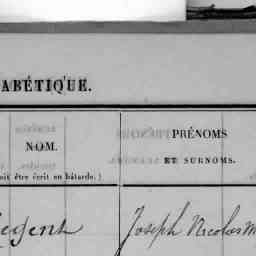 ABÉTIQUE.
NOM.
oit être écrit en bâtarde.)
PRÉNOMS
ET SURNOMS.
Joseph Nicolas M